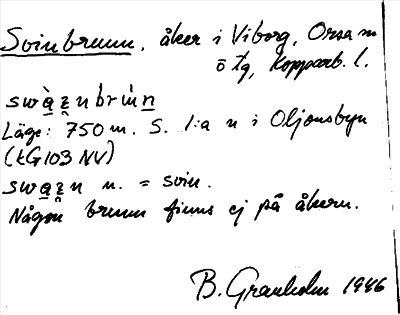 Svinbrunn, åker i Viborg, Orsa sn
o tg, Kopparb. l.
Läge: 750 m. S. 1:a n i Oljonsbyn
(kG 103 NV)
n. = svin.
Någon brunn finns ej på åkern.
B. Granholm 1946